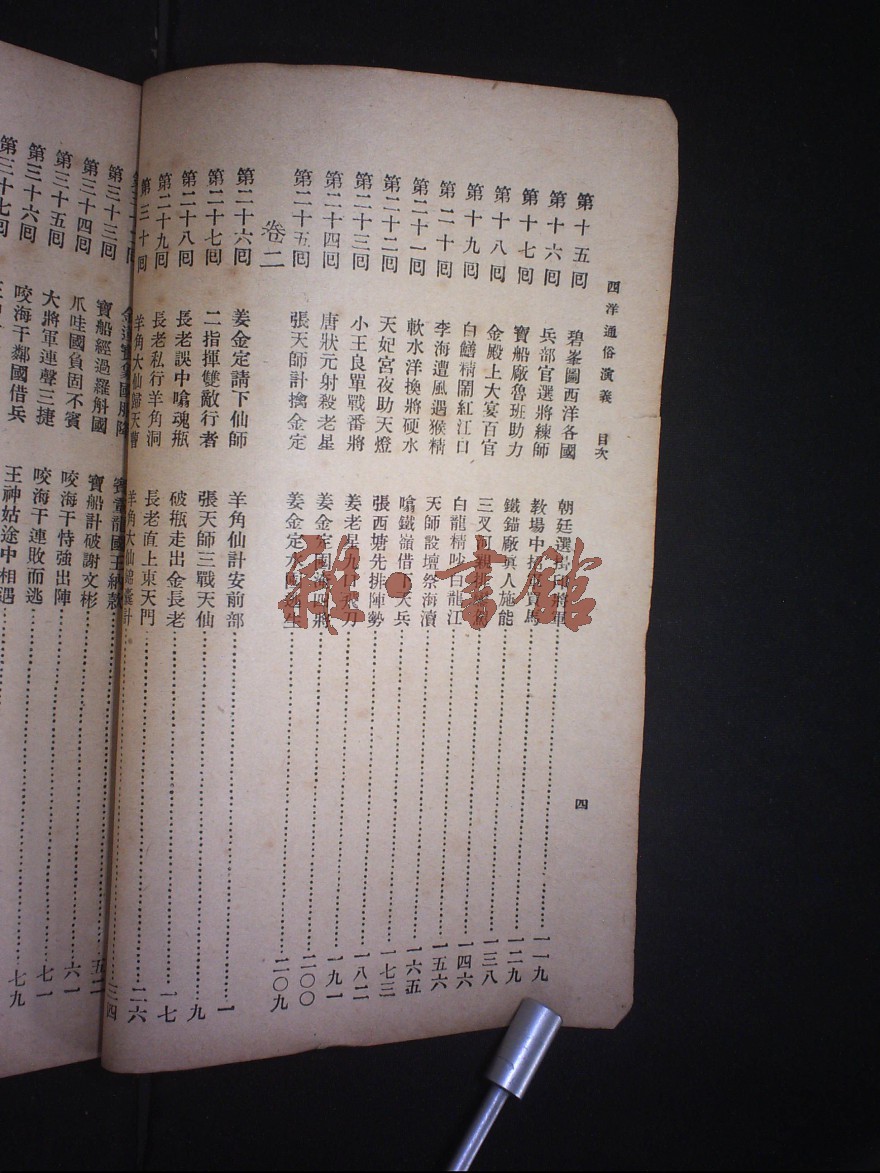 西洋通俗演義 目次 四
第十五回 碧峯圖西洋各國 朝廷選掛印將軍 一一九
第十六回 兵部官選將練師 教場中招 買馬 一二九
第十七回 寶船廠魯班助力 鐵錨廠眞人施能 一三八
第十八回 金殿上大宴百官 三叉河親排 一四六
第十九回 白鱔精鬧紅江口 白龍精吵白龍江 一五六
第二十回 李海遭風遇猴精 天師設壇祭海瀆 一六五
第二十一回 軟水洋換將硬水 嗋鐵嶺借下天兵 一七三
第二十二回 天妃宮夜助天燈 張西塘先排陣勢 一八二
第二十三回 小王良單戰番將 姜老星九口飛刀 一九一
第二十四回 唐狀元射殺老星 姜金定囤淹四將 二〇〇
第二十五回 張天師計擒金定 姜金定水囤逃生 二〇九
卷二
第二十六回 姜金定請下仙師 羊角仙計安前部 一
第二十七回 二指揮雙敵行者 張天師三戰天仙 九
第二十八回 長老誤中嗋魂瓶 破瓶走出金長老 一七
第二十九回 長老私行羊角洞 長老直上東天門 二六
第三十回 羊角大仙歸天曹 羊角大仙錦囊計 三四
賓童龍國王納款 五二
第三十三回 寶船經過羅斛國 寶船計破謝文彬 六一
第三十四回 爪哇國負固不賓 咬海干恃強出陣 七一
第三十五回 大將軍連聲三捷 咬海干連敗而逃 七九
第三十六回 咬海干鄰國借兵 王神姑途中相遇
第三十七回
雅·書館